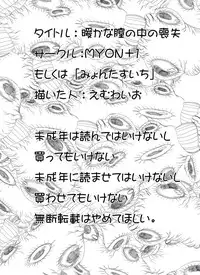 タイトル：暖かな瞳の中の喪失
サークル：MYON+1
もしくは「みょんたすいち」
描いた人：えむわいお
未成年は読んではいけないし
買ってもいけない
未成年に読ませてはいけないし
買わせてもいけない
無断転載はやめてほしい。